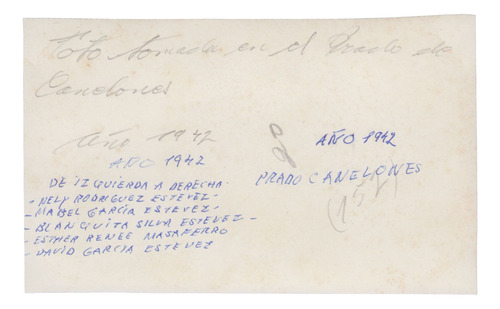 Foto tomada en el Prado de
Canelones
Año 1942
AÑO 1942
DE IZQUIERDA A DERECHA.
- NELY RODRIGUEZ ESTEVEZ -
- MABEL GARCIA ESTEVEZ -
- BLANQUITA SILVA ESTEVEZ -
- ESTHER RENEE MASAFERRO
- DAVID GARCIA ESTEVEZ
AÑO 1942
PRADO CANELONES
(152)